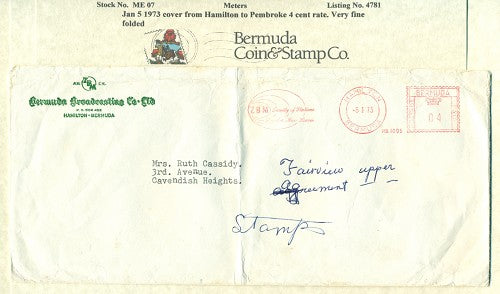 Stock No. ME 07 Meters Listing No. 4781
Jan 5 1973 cover from Hamilton to Pembroke 4 cent rate. Very fine
folded
Bermuda
Coin & Stamp Co.
ZBM
Bermuda Broadcasting Co·Ltd
P. O. BOX 452
HAMILTON·BERMUDA
ZBM Family of Stations
HAMILTON
-5 I 73
BERMUDA
BERMUDA
04
PB 1095
Mrs. Ruth Cassidy.
3rd. Avenue.
Cavendish Heights.
Fairview upper
agreement
Stamps